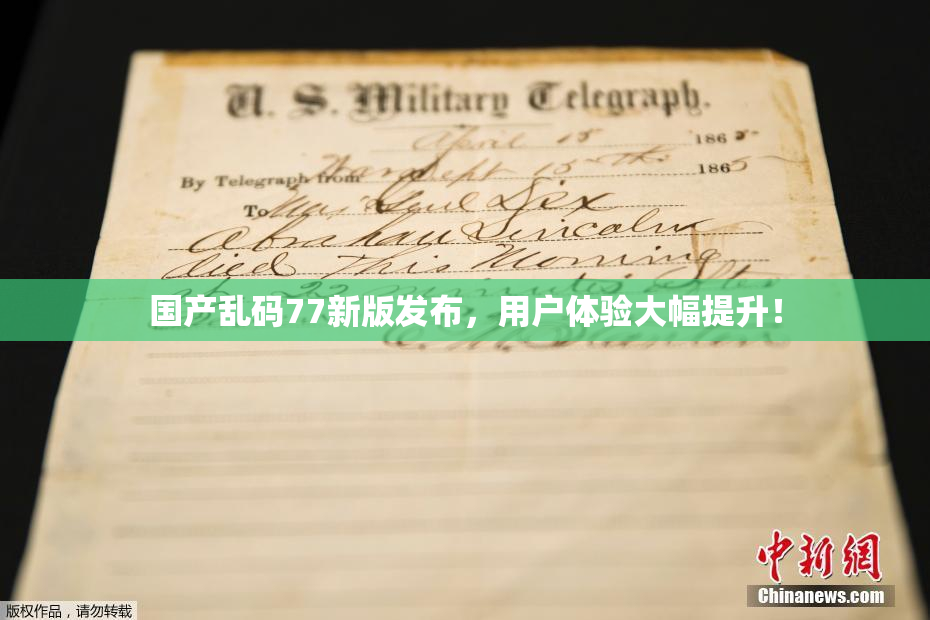 U. S. Military Telegraph.
April 15 1865
By Telegraph from War Dept 15th 1865
To Maj Genl Dix
Abraham Lincoln
died This Morning
at 22 minutes after
国产乱码77新版发布，用户体验大幅提升！
E. M. Stanton
中新网
Chinanews.com
版权作品，请勿转载